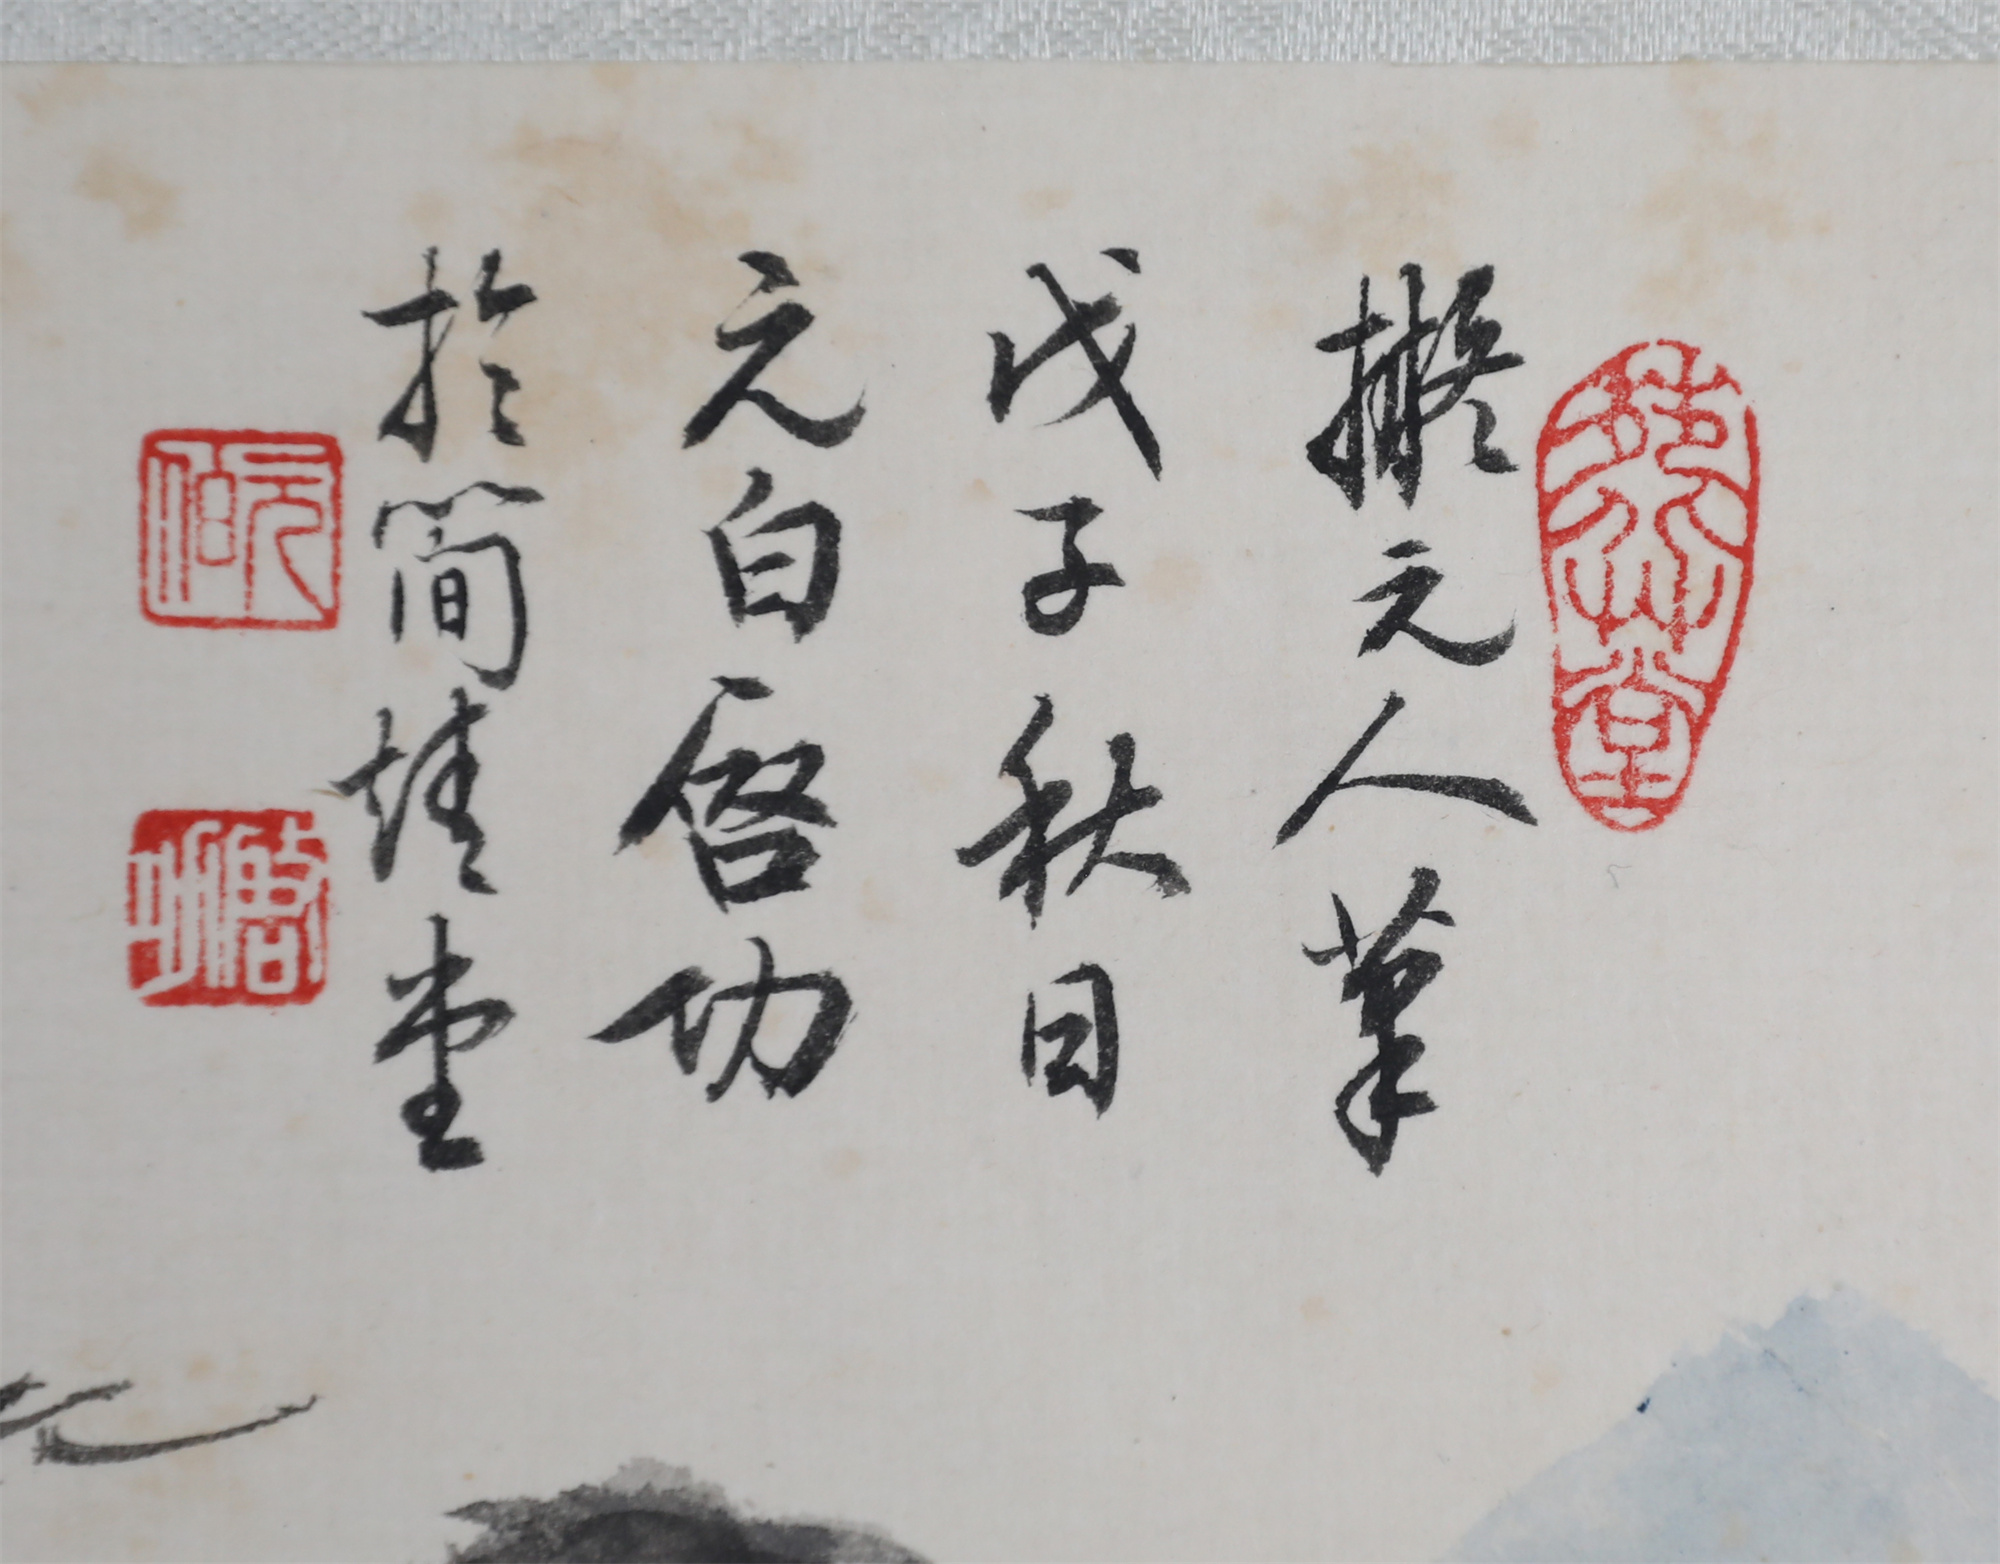 擬元人筆
戊子秋日
元白啓功
於簡靖堂
元伯
啓功